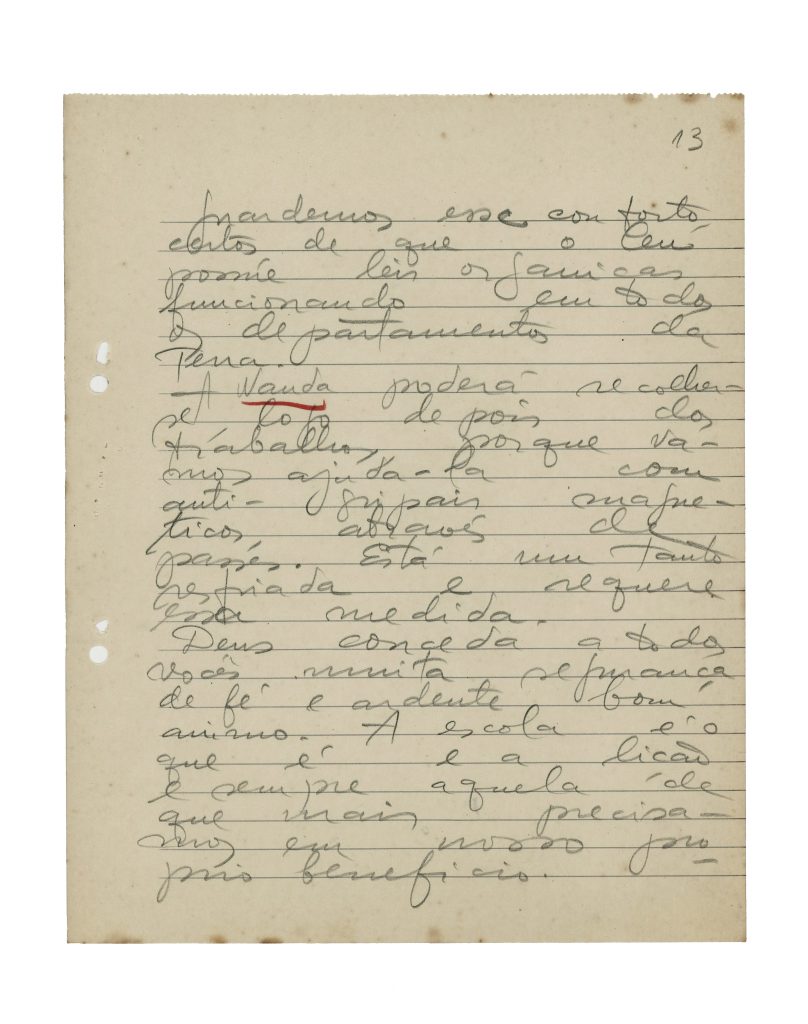 13
Guardemos esse conforto
certos de que o Céu
possúe leis organicas
funcionando em todos
os departamentos da
Terra.
A Wanda poderá recolher-
se logo depois dos
trabalhos, porque va-
mos ajuda-la com
anti-gripais magne-
ticos, através de
passes. Está um tanto
resfriada e requere
essa medida.
Deus conceda a todos
vocês muita segurança
de fé e ardente bom
animo. A escola é o
que é e a lição
é sempre aquela de
que mais precisa-
mos em nosso pro-
prio beneficio.